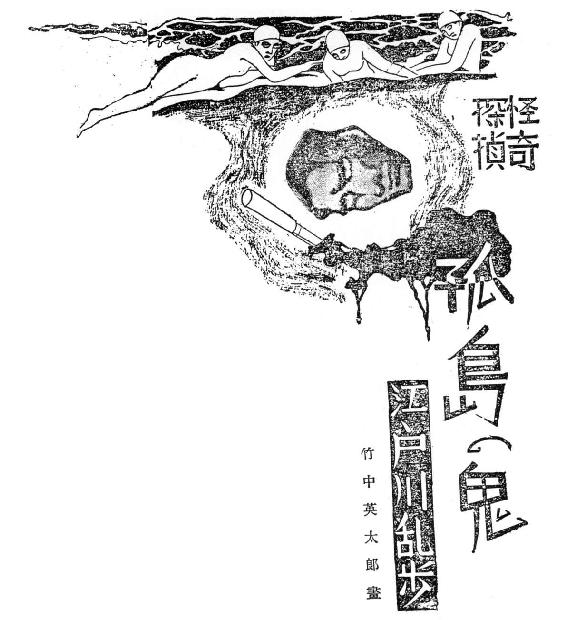 怪奇
探偵
孤島の鬼
江戸川乱歩
竹中英太郎畫